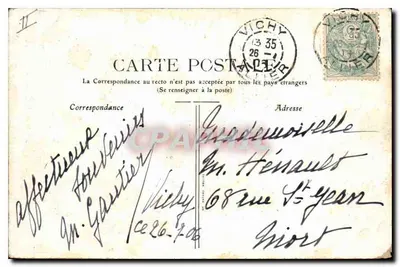 II
VICHY
13 35
26 -7
ALLIER
CARTE POSTALE
La Correspondance au recto n'est pas acceptée par tous les pays étrangers
(Se renseigner à la poste)
Correspondance
Adresse
affectueux
souvenirs
M. Gautier
Vichy
ce 26-7-06
Mademoiselle
M. Hénault
68 rue St Jean
Niort